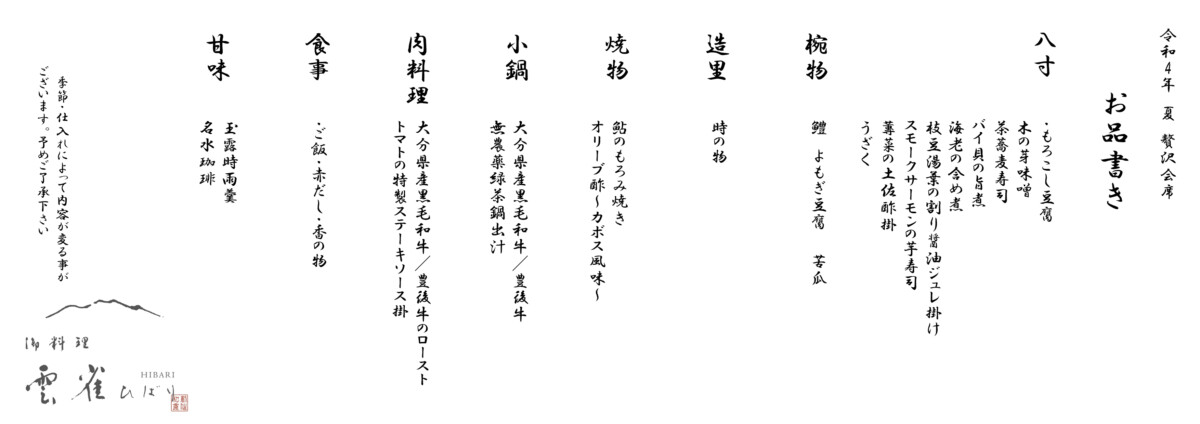 令和4年 夏 贅沢会席
お品書き
八寸
・もろこし豆腐
木の芽味噌
茶蕎麦寿司
バイ貝の旨煮
海老の含め煮
枝豆湯葉の割り醤油ジュレ掛け
スモークサーモンの芋寿司
蓴菜の土佐酢掛
うざく
椀物
鱧 よもぎ豆腐 苦瓜
造里
時の物
焼物
鮎のもろみ焼き
オリーブ酢〜カボス風味〜
小鍋
大分県産黒毛和牛／豊後牛
無農薬緑茶鍋出汁
肉料理
大分県産黒毛和牛／豊後牛のロースト
トマトの特製ステーキソース掛
食事
・ご飯・赤だし・香の物
甘味
玉露時雨羹
名水珈琲
季節・仕入れによって内容が変る事が
ございます。予めご了承下さい
御料理
雲雀 ひばり
HIBARI